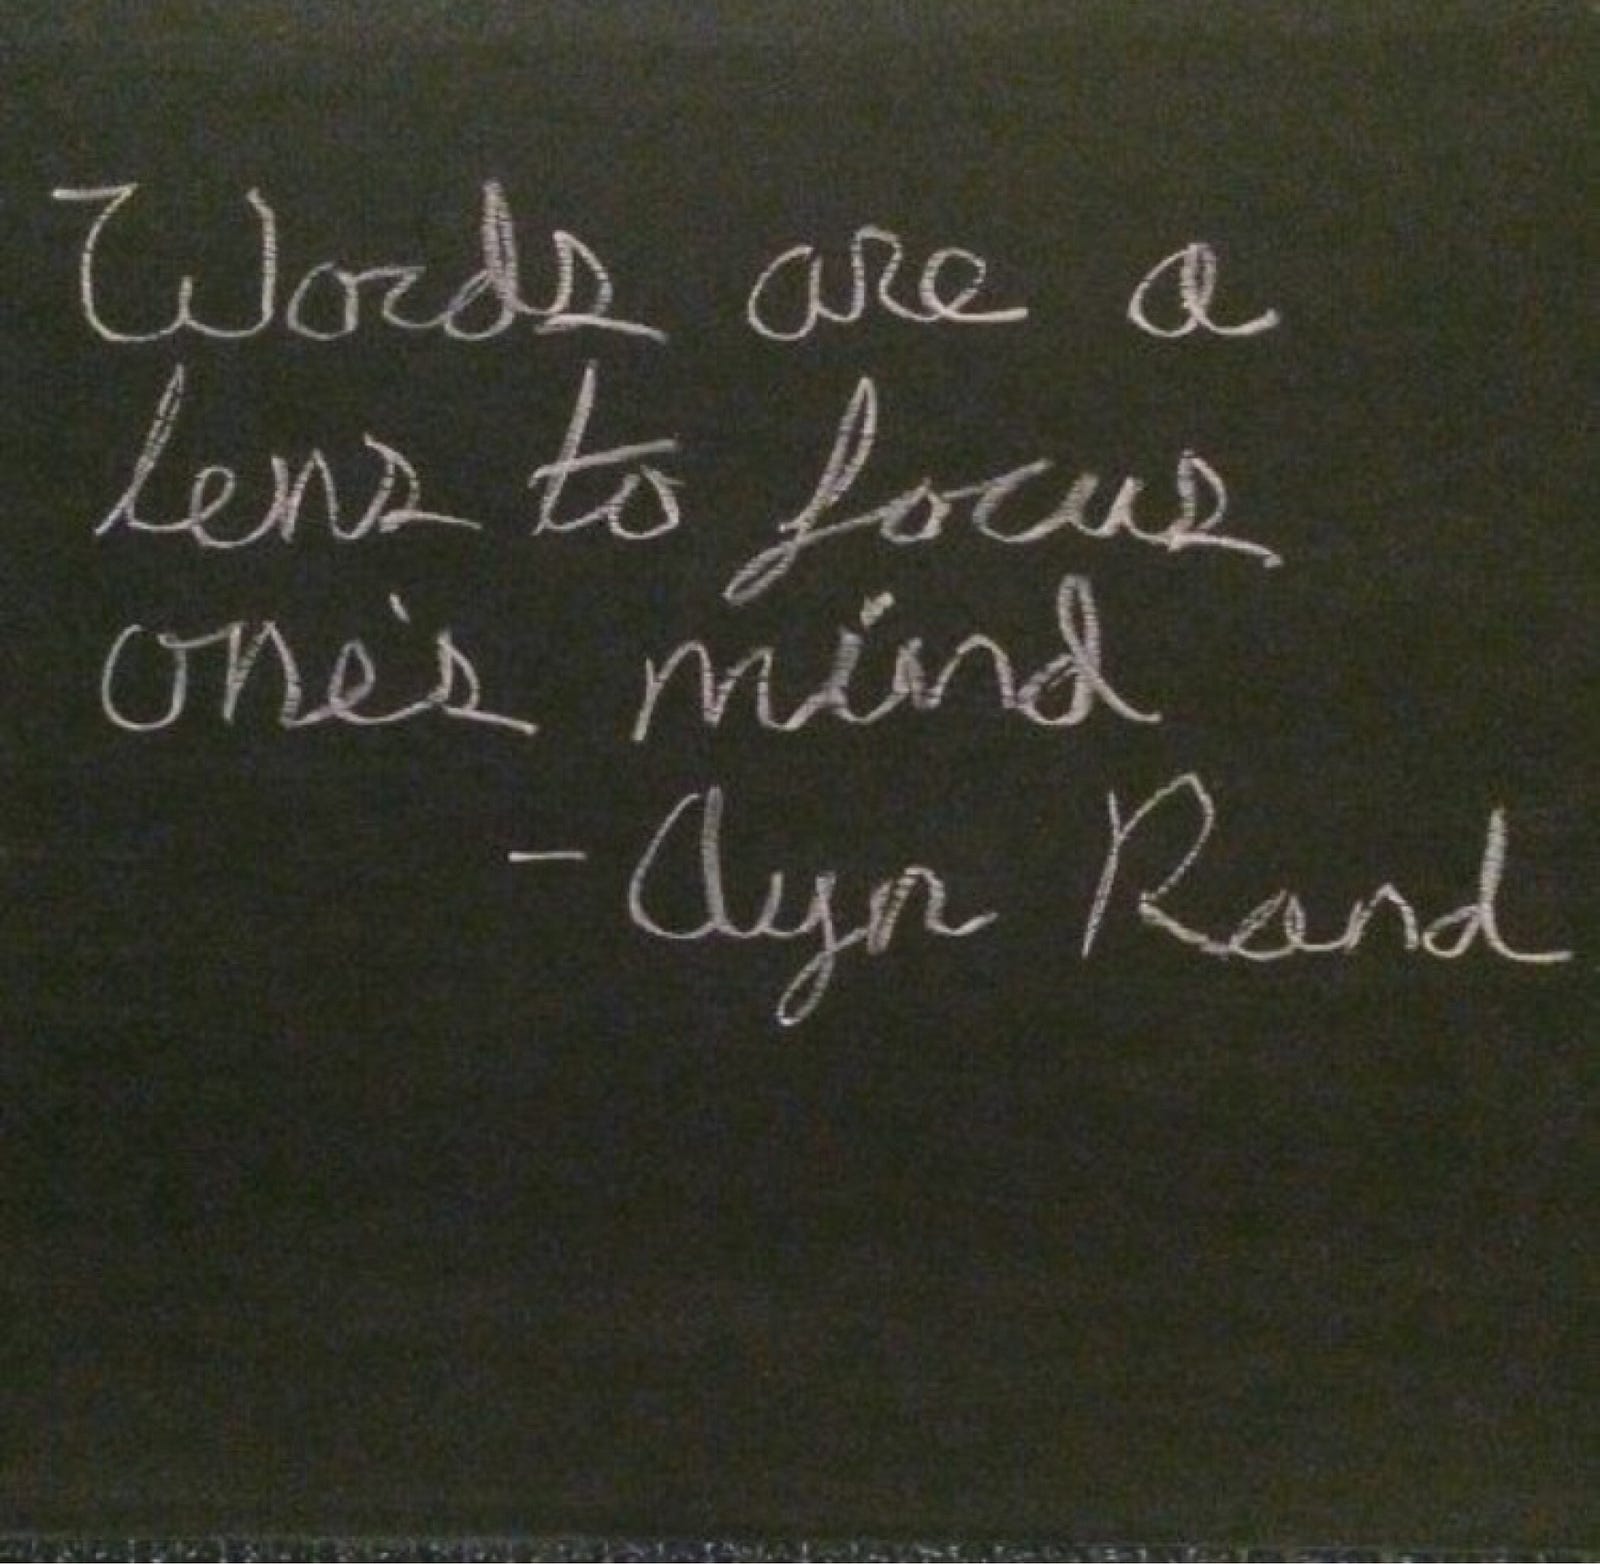 Words are a
lens to focus
one's mind
- Ayn Rand